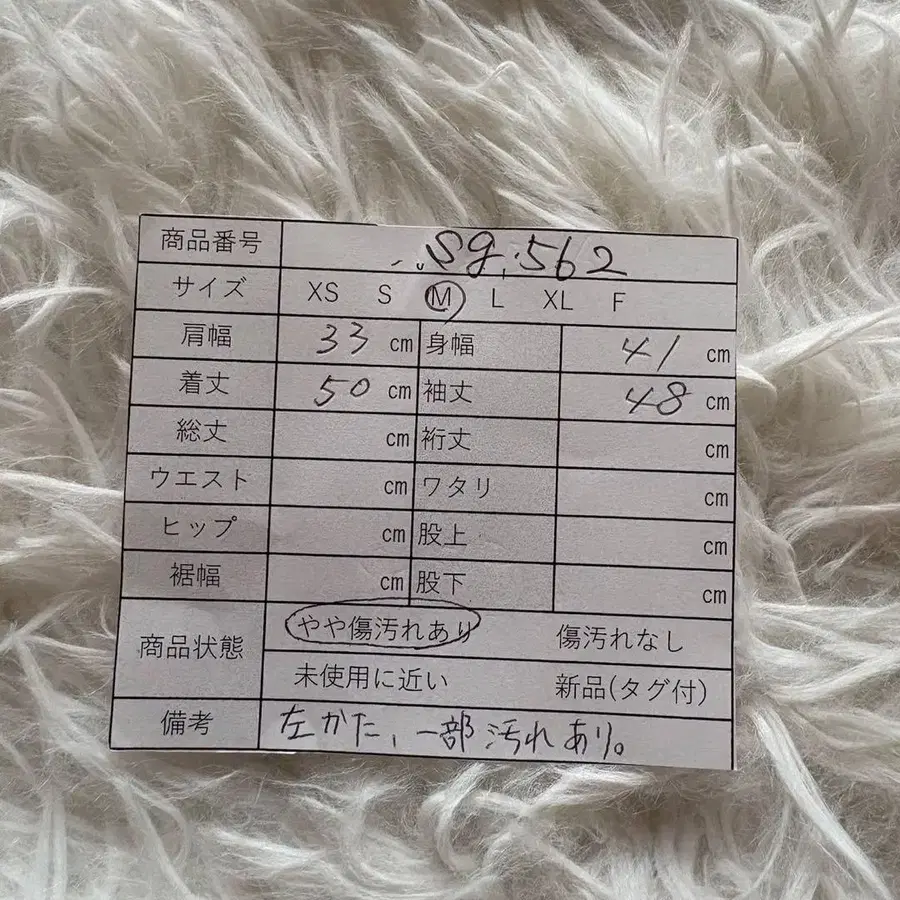 商品番号 Sg.562
サイズ XS S M L XL F
肩幅 33 cm 身幅 41 cm
着丈 50 cm 袖丈 48 cm
総丈 cm 裄丈 cm
ウエスト cm ワタリ cm
ヒップ cm 股上 cm
裾幅 cm 股下 cm
商品状態 やや傷汚れあり 傷汚れなし
未使用に近い 新品(タグ付)
備考 左かた、一部汚れあり。